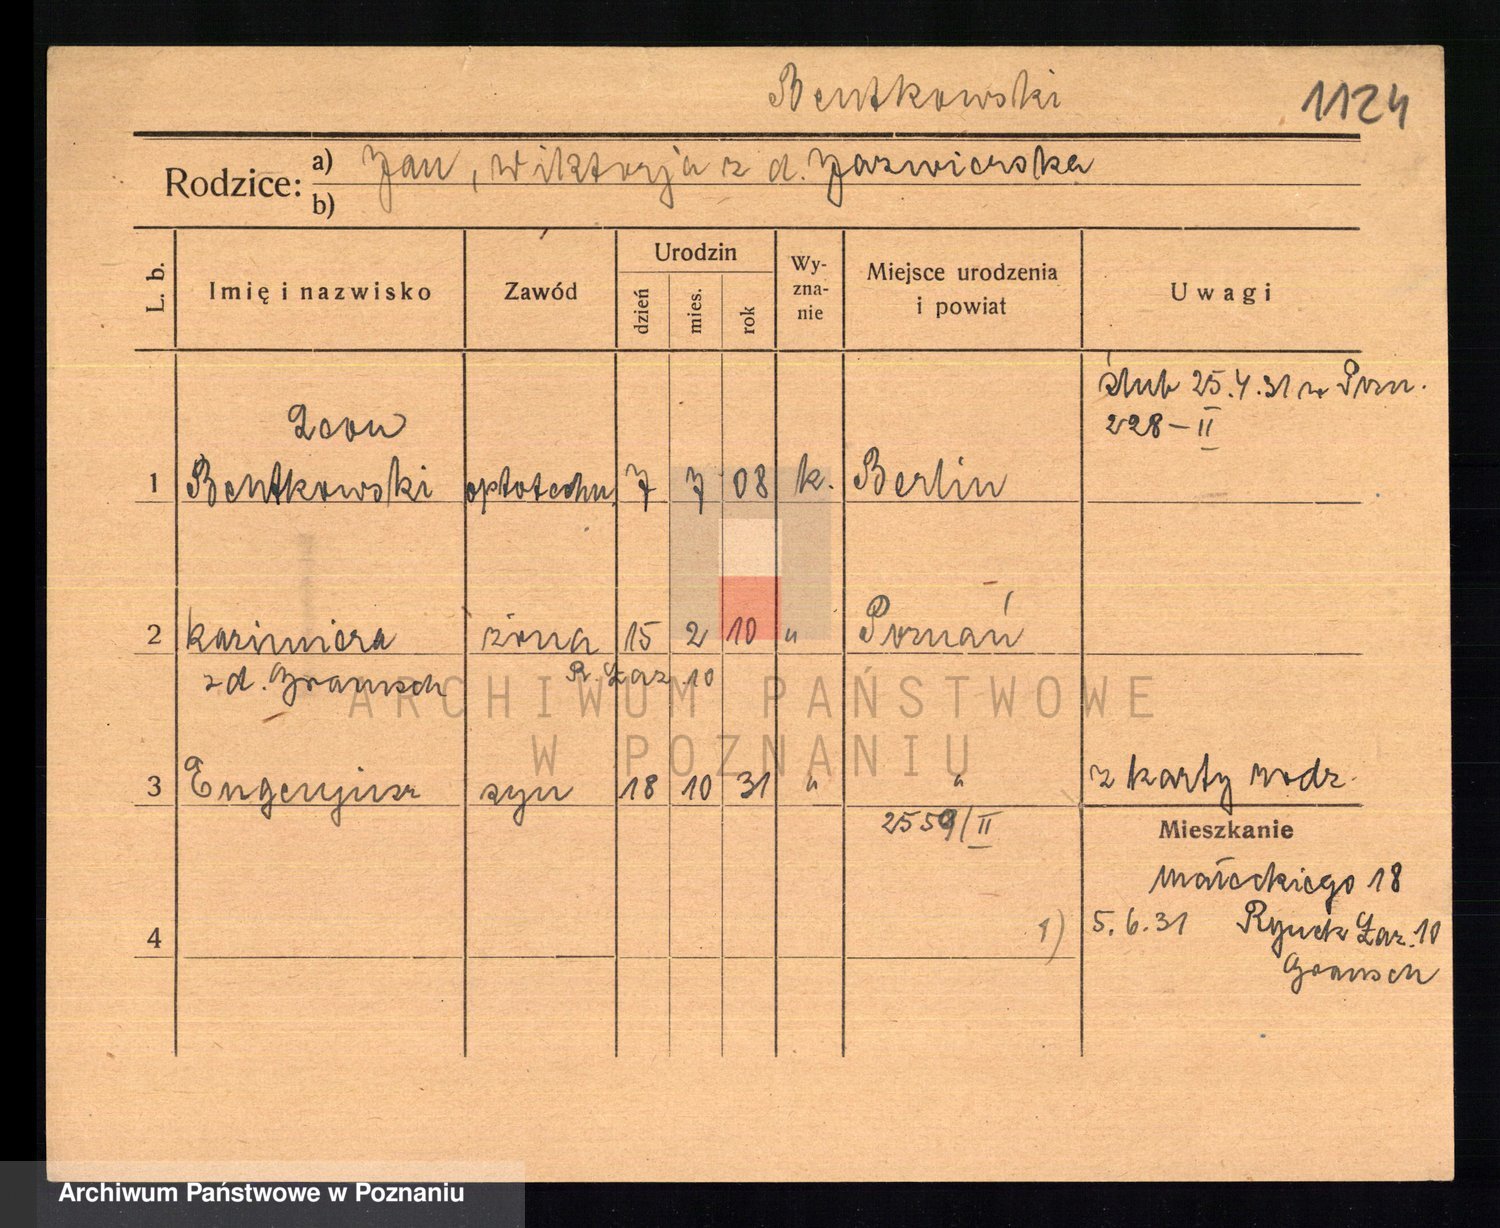 Bentkowski 1124
Rodzice: a) Jan, Wiktorja z d. Jazwierska
b)
L. b. Imię i nazwisko Zawód Urodzin dzień mies. rok Wy-zna-nie Miejsce urodzenia i powiat Uwagi
ślub 25.4.31 w Pozn.
228-II
Leon
1 Bentkowski optotechn. 7 7 08 k. Berlin
2 Kazimiera żona 15 2 10 " Poznań
z d. Gramsch R. Łaz 10
ARCHIWUM PAŃSTWOWE
W POZNANIU
3 Eugenjusz syn 18 10 31 " " z karty rodz.
2559/II
Mieszkanie
Małeckiego 18
4 1) 5.6.31 Rynek Łaz. 10
Gramsch
Archiwum Państwowe w Poznaniu